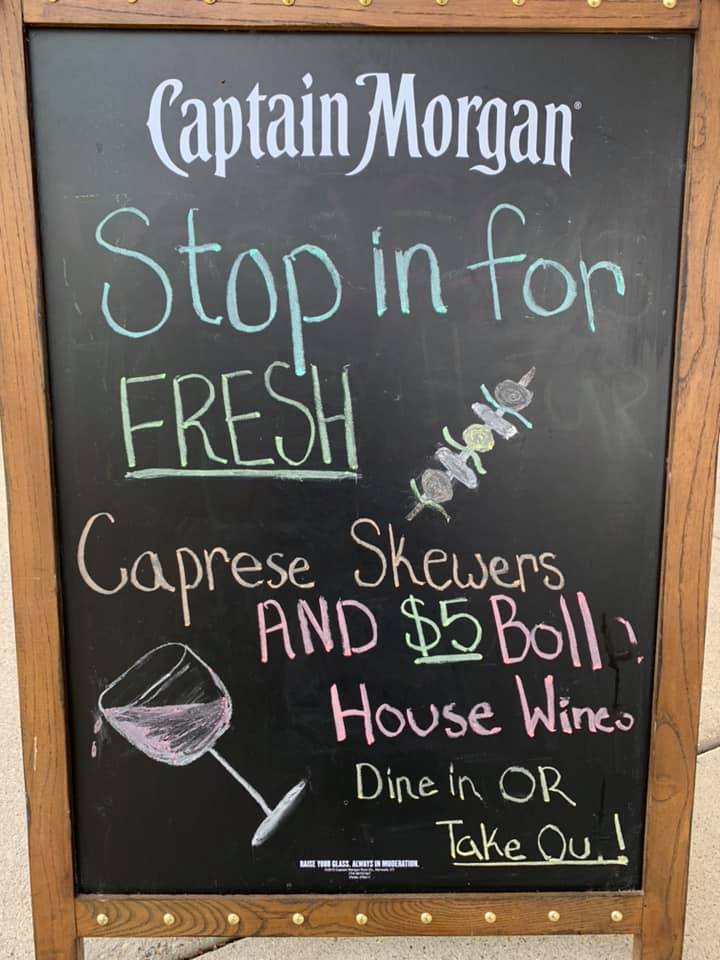 Captain Morgan
Stop in for
FRESH
Caprese Skewers
AND $5 Bolla
House Wines
Dine in OR
Take Out!
RAISE YOUR GLASS. ALWAYS IN MODERATION.